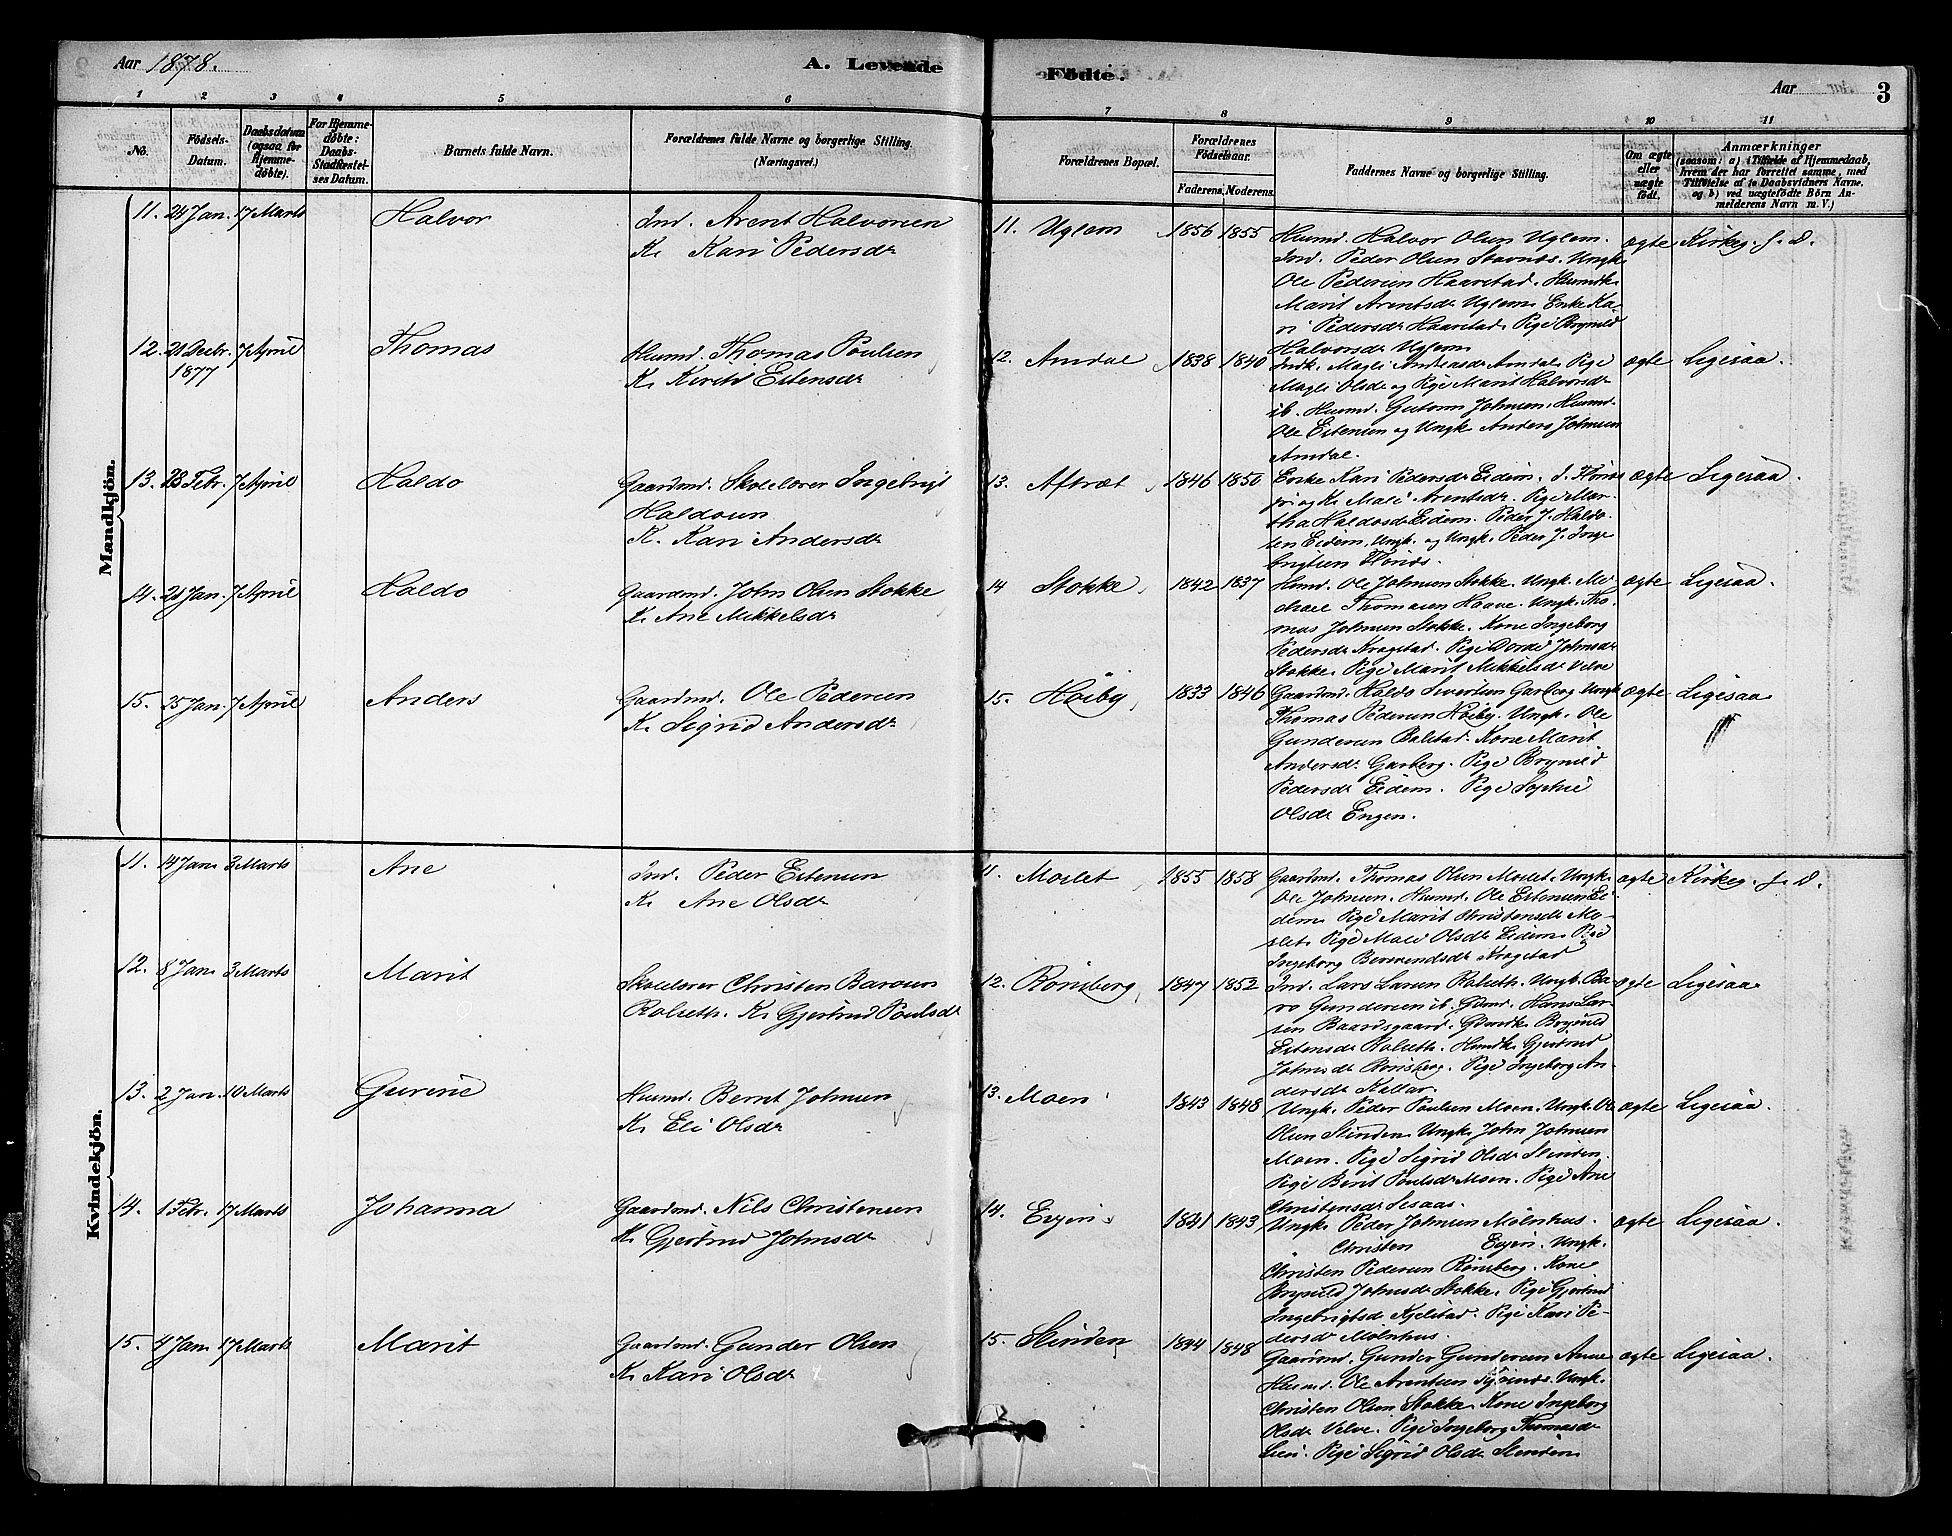 Aar 1878.
A. Levende
Födte.
Aar
3
1 2 3 4 5 6
7 8 9 10 11
No.
Födsels-Datum.
Daabsdatum (ogsaa for Hjemmedøbte).
For Hjemmedøbte: Daabs-Stadfæstelses Datum.
Barnets fulde Navn.
Forældrenes fulde Navne og borgerlige Stilling.
(Næringsvei.)
Forældrenes Bopæl.
Forældrenes Födselsaar.
Faderens. Moderens.
Faddernes Navne og borgerlige Stilling.
Om ægte eller uægte født.
Anmærkninger
(saasom: a) i Tilfælde af Hjemmedaab,
hvem der har forrettet samme, med
Tilföielse af to Daabsvidners Navne,
og b) ved uægtefödte Börn An-
melderens Navn m. V.)
Mandkjön.
11. 24 Jan. 17 Marts Halvor Ind. Arent Halvorsen
K. Kari Pedersdr
11. Uglem 1856 1855 Husmd. Halvor Olsen Uglem. ægte Kirkeg. f. D.
Ind. Peder Olsen Stavnæs. Ungk
Ole Pedersen Haarstad. Husmdk.
Marit Arentsdr Uglem. Enke Ka-
ri Pedersdr Haarstad. Pige Brynild
Halvorsdr Uglem
12. 21 Decbr. 1877 7 April Thomas Husmd. Thomas Poulsen
K. Kirsti Estensdr
12. Amdal 1838 1840 Indk. Magli Andreasdr Amdal. Pige ægte Ligesaa.
Magli Olsdr og Pige Marit Halvorsdr
ib. Husmd. Gutorm Johnsen. Husmd.
Ole Estensen og Ungk Anders Johnsen
Amdal.
13. 28 Febr. 7 April Haldo Gaardmd. Skolelærer Ingebrigt
Haldosen
K. Kari Andersdr
13. Aftræt 1846 1850 Enke Kari Pedersdr Eidem. ægte Ligesaa.
K. Mali Arentsdr. Pige Mar-
tha Haldosdr Eidem. Peder J. Haldo-
sen Eidem, Ungk. og Ungk. Peder J. Inge
brigtsen
14. 21 Jan. 7 April Haldo Gaardmd. John Olsen Stokke
K. Ane Mikkelsdr
14 Stokke 1842 1837 Husmd. Ole Johnsen Stokke. Ungk. Mi- ægte Ligesaa.
chael Thomasen Haave. Ungk. Tho-
mas Johnsen Stokke. Kone Ingeborg
Pedersdr Kragstad. Pige Dordi Johnsdr
Stokke. Pige Marit Mikkelsdr Velve
15. 25 Jan. 7 April Anders Gaardmd. Ole Pedersen
K. Sigrid Andersdr
15. Høiby 1833 1846 Gaardmd. Haldo Sivertsen Garberg. Ungk ægte Ligesaa
Thomas Pedersen Høiby. Ungk. Ole
Gundersen Balstad. Kone Marit
Andersdr Garberg. Pige Brynild
Pedersdr Eidem. Pige Sophie
Olsdr Engen.
Kvindekjön.
11. 14 Jan 3 Marts Ane Ind. Peder Estensen
K. Ane Olsdr
11. Moslet 1855 1858 Gaardmd. Thomas Olsen Moslet. Ungk. ægte Kirkeg. f. D.
Ole Johnsen. Husmd. Ole Estensen Ei
dem. Pige Marit Christensdr Mo-
slet. Pige Mali Olsdr Eidem. Pige
Ingeborg Kragstad
12. 8 Jan 3 Marts Marit Skolelærer Christen Barosen
Rolseth. K. Gjertrud Poulsdr
12. Rönsberg 1847 1852 Ind. Lars Larsen Rolseth. Ungk. Ba- ægte Ligesaa
ro Gundersen ib. Gdmd. Hans Lar-
sen Baardsgaard. Gdmdk. Brynild
Estensdr Rolseth. Husmdk Gjertrud
Johnsdr Rönsberg. Pige Ingeborg An
dersdr Kallar.
13. 2 Jan. 10 Marts Gurine Husmd. Bernt Johnsen
K. Eli Olsdr
13. Moen 1843 1848 Ungk. Peder Poulsen Moen. Ungk. Ole ægte Ligesaa.
Olsen Slinden. Ungk. John Johnsen
Moen. Pige Sigrid Olsdr Slinden.
Pige Berit Poulsdr Moen. Pige Ane
Christensdr Sesaas.
14. 1 Febr. 17 Marts Johanna Gaardmd. Nils Christensen
K. Gjertrud Johnsdr
14. Evjen 1841 1843 Ungk. Peder Johnsen Mölnhus. ægte Ligesaa.
Christen Evjen. Ungk.
Christen Pedersen Rönsberg. Kone
Brynild Johnsdr Stokke. Pige Gjertrud
Ingebrigtsdr Kjelstad. Pige Kari Pe-
dersdr Mölnhus.
15. 4 Jan. 17 Marts Marit Gaardmd. Gunder Olsen
K. Kari Olsdr
15. Slinden 1844 1848 Gaardmd. Gunder Gundersen Aune ægte Ligesaa.
Husmd. Ole Arentsen Ungk.
Christen Olsen Stokke. Kone Ingeborg
Olsdr Velve. Pige Ingeborg Thomasdr
Lien. Pige Sigrid Olsdr Slinden